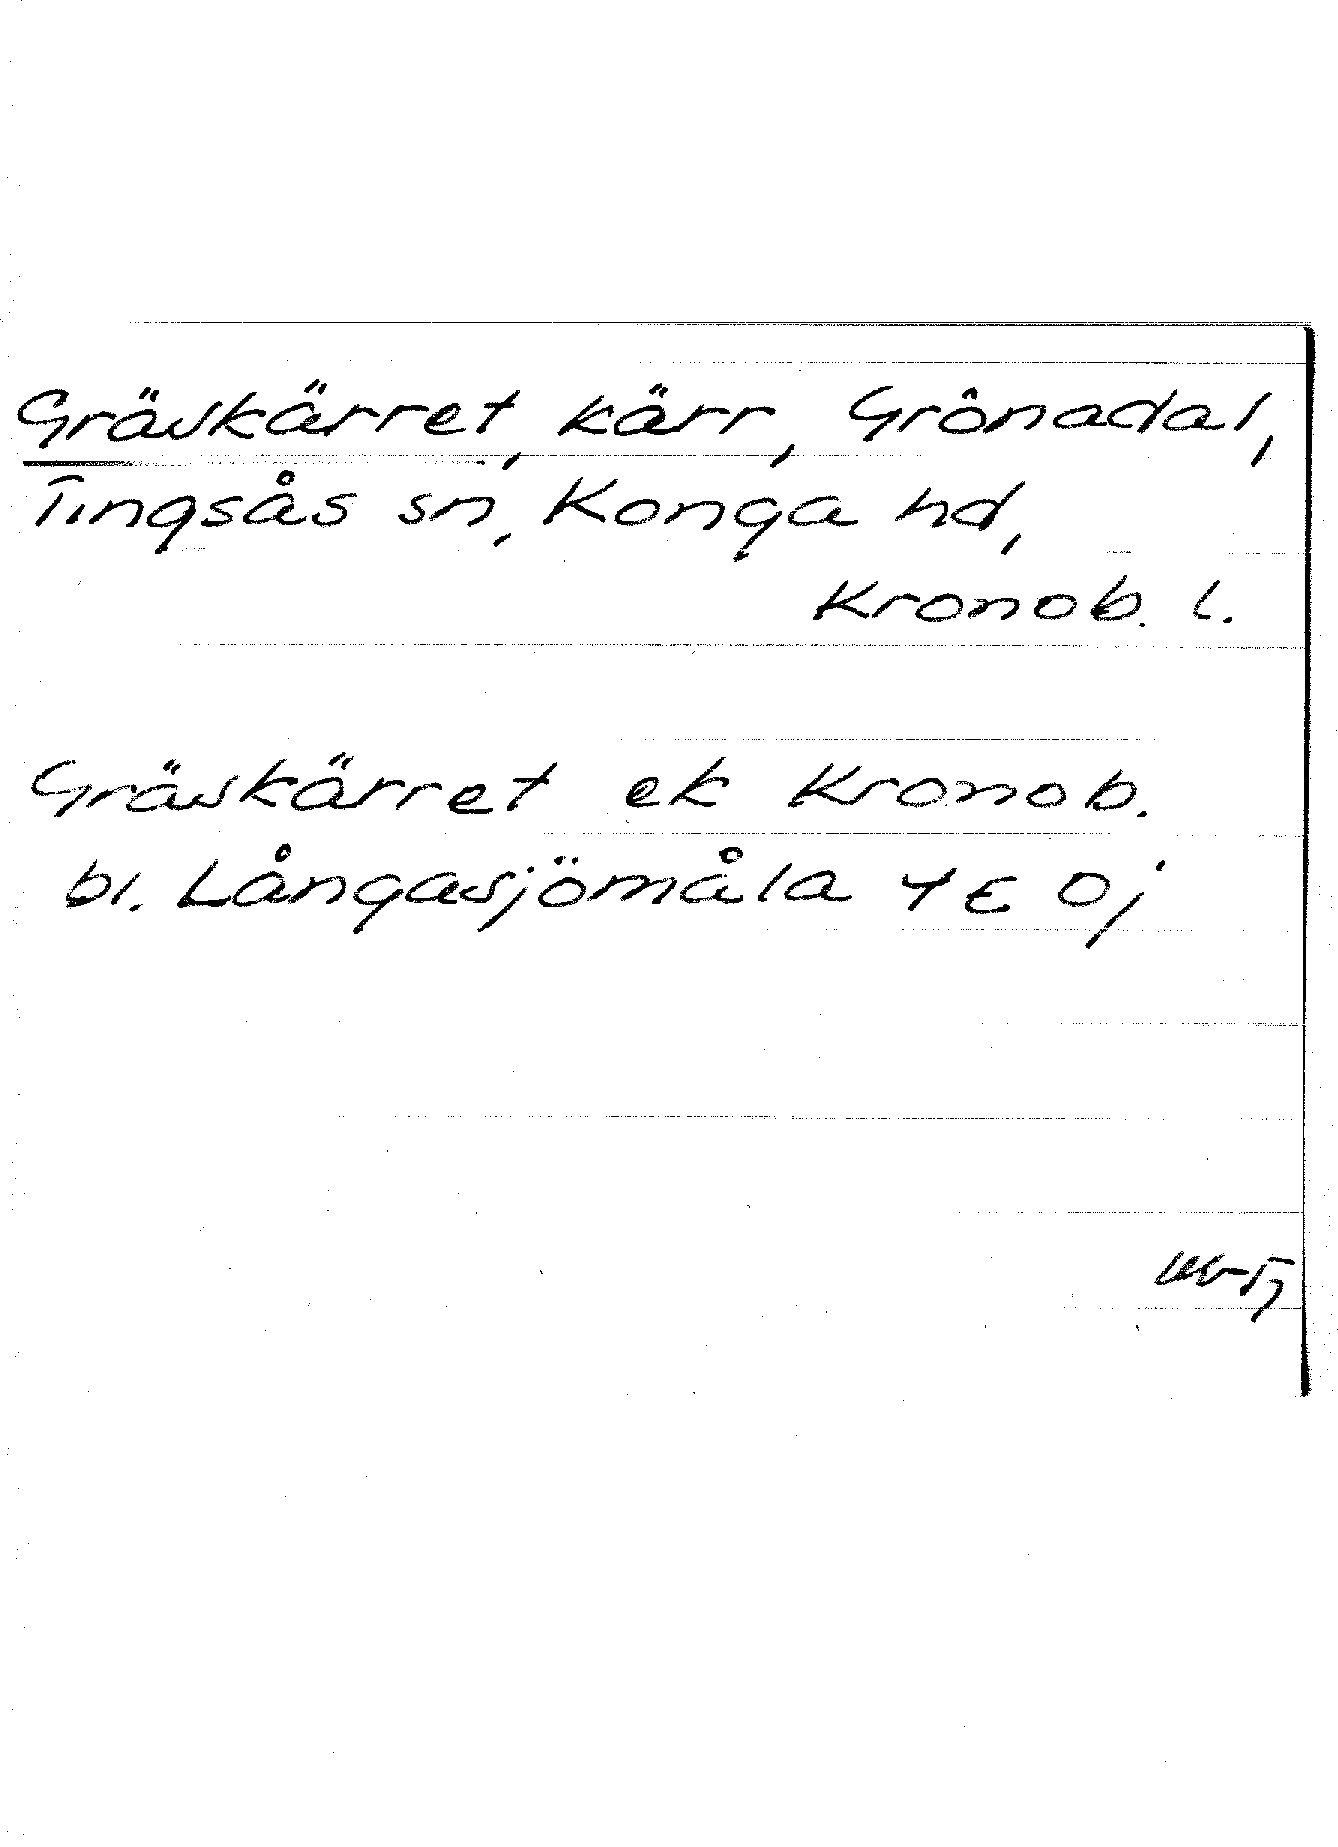 Gräskärret, kärr, Grönadal,
Tingsås sn, Konga hd,
Kronob. l.
Gräskärret ek Kronob.
bl. Långasjömåla 4 E Oj